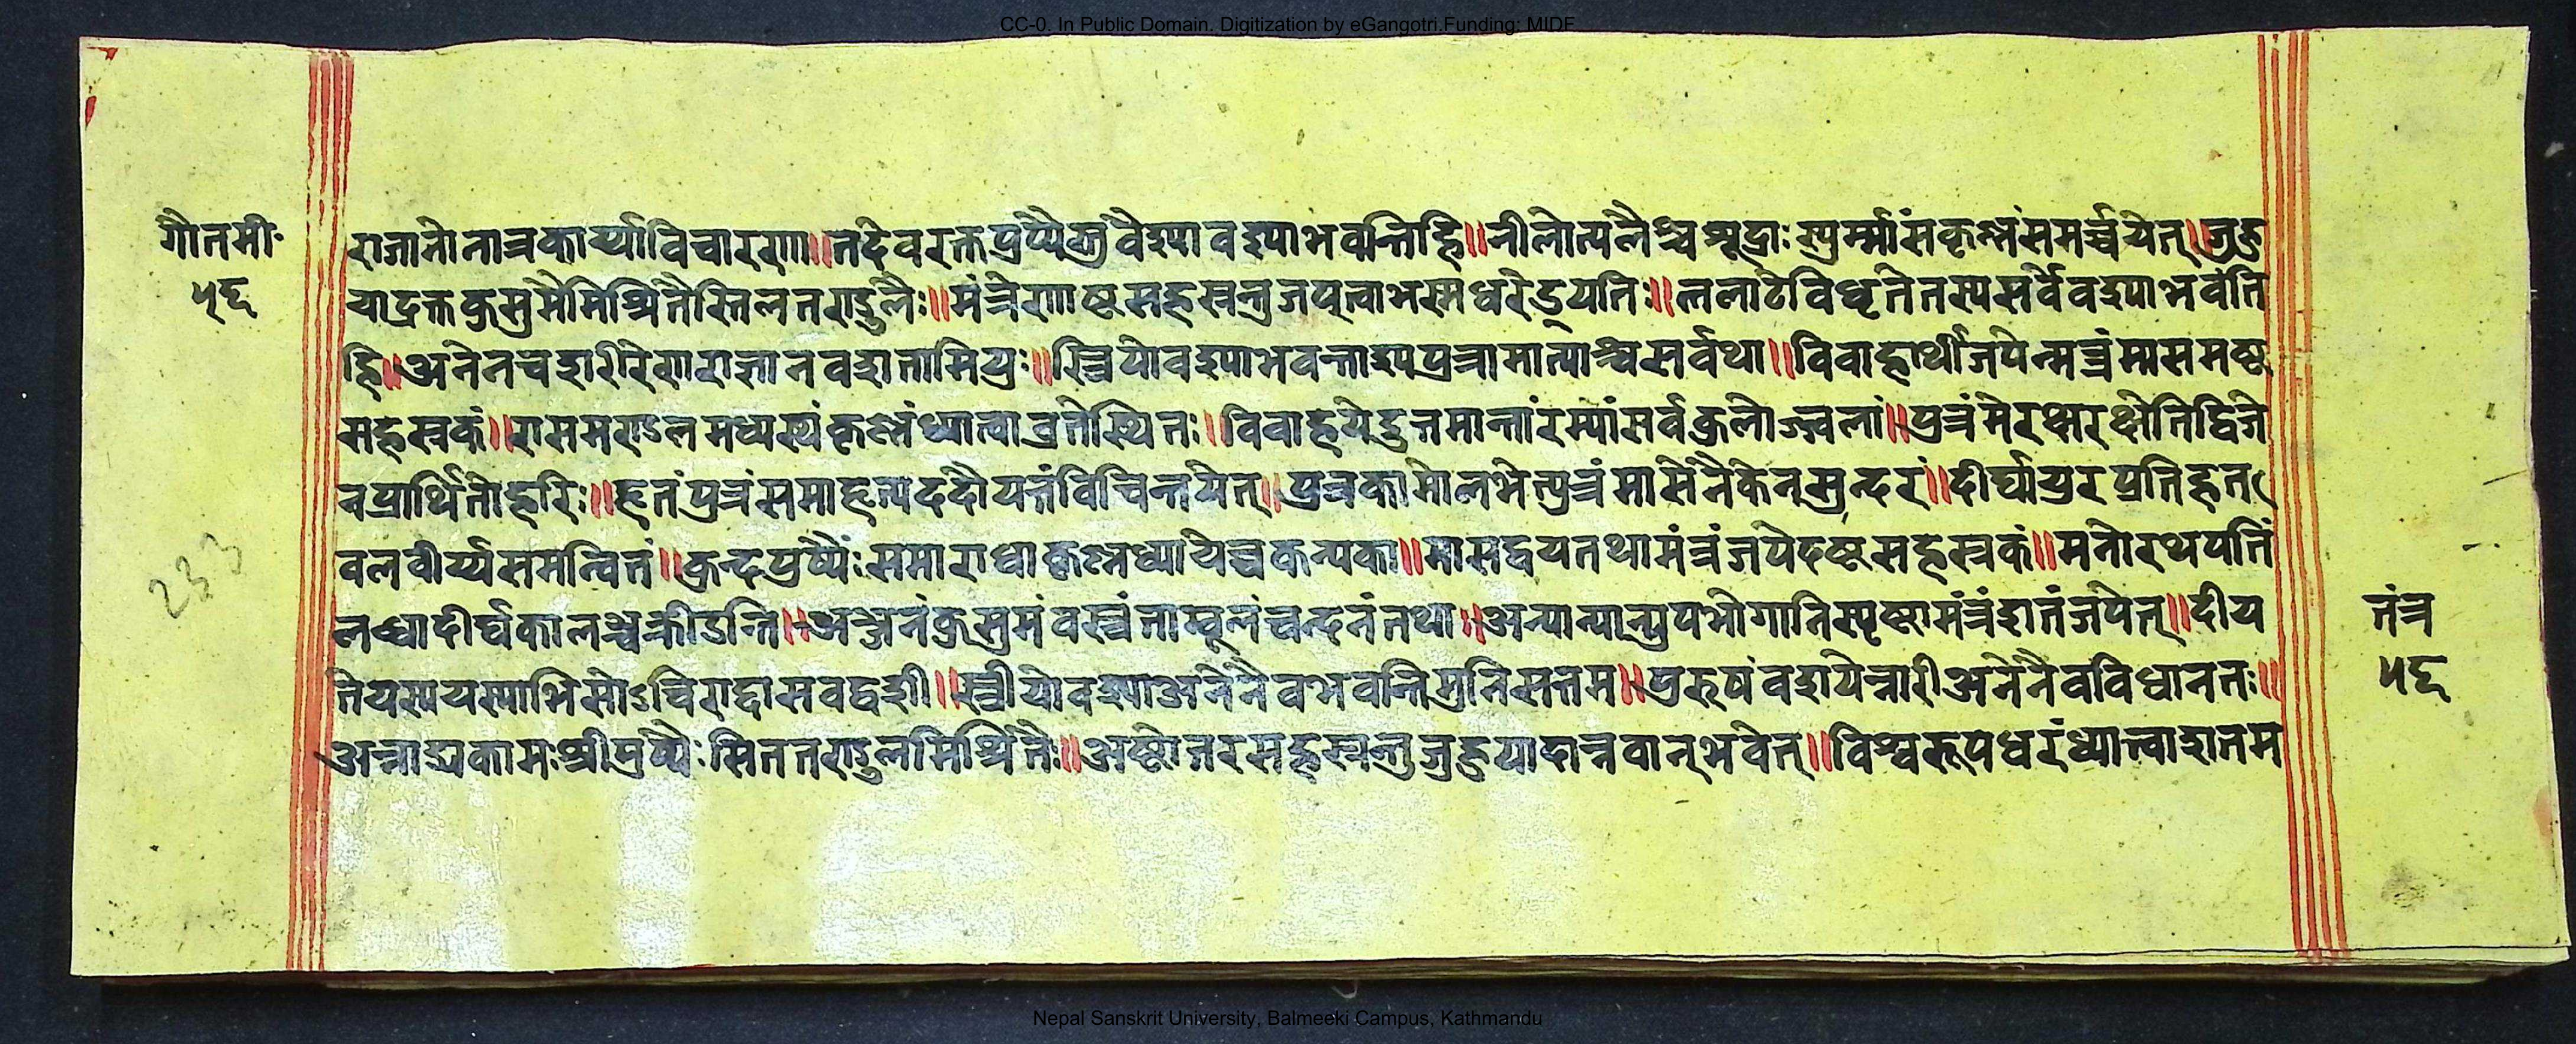 CC-0. In Public Domain. Digitization by eGangotri.Funding: MIDF
गौतमी
५८
राजानोनात्रकार्य्याविचारणा॥तदेवरक्तपुष्पैश्रवैश्यावश्याभवन्तिहि॥नीलोत्पलैश्चशूद्राःस्युर्म्मासंकृष्णंसमर्च्चयेत्॥जुहु
याद्रक्तकुसुमैमिश्रितैस्तिलतण्डुलैः॥मंत्रेणाष्टसहस्रन्तुजप्त्वाभस्मधरेद्यतिः॥ललाटेविधृतेतस्यसर्वेवश्याभवंति
हि॥अनेनचशरीरेणराजानवशतामियुः॥स्त्रियोवश्याभवन्ताश्यपुत्रामात्याश्चसर्वथा॥विवाहार्थीजपेन्मन्त्रंमासमष्ट
सहस्रकं॥रासमण्डलमध्यस्थंकृष्णंध्यात्वाव्रतेस्थितः॥विवाहयेदुत्तमान्तांरम्यांसर्वकुलोज्ज्वलां॥पुत्रंमेरक्षरक्षेतिद्विजे
नप्रार्थितोहरिः॥हृतंपुत्रंसमाहृत्यददौयत्तंविचिन्तयेत्॥पुत्रकामोलभेत्पुत्रंमासेनैकेनसुन्दरं॥दीर्घायुरप्रतिहत
वलवीर्य्यसमन्वितं॥कुन्दपुष्पैःसमाराध्यकृष्णध्यायेच्चकन्यका॥मासद्वयतथामंत्रंजपेदष्टसहस्रकं॥मनोरथपतिं
लब्ध्वादीर्घकालञ्चक्रीडन्ति॥अञ्जनंकुसुमंवस्त्रंताम्बूलंचन्दनंतथा॥अन्यान्यान्युपभोगानिस्पृष्ट्वामंत्रंशतंजपेत्॥दीय
तेयस्ययस्याभिसोऽचिराद्दासवद्वशी॥स्त्रीयोवश्याअनेनैवभवन्तिमुनिसत्तम॥पुरुषंवशयेन्नारीअनेनैवविधानतः॥
अन्नाद्यकामःश्रीपुष्पैःसिततण्डुलमिश्रितैः॥अष्टोत्तरसहस्रन्तुजुहुयादान्नवान्भवेत्॥विश्वरूपधरंध्यात्वाशतम
233
तंत्र
५८
Nepal Sanskrit University, Balmeeki Campus, Kathmandu